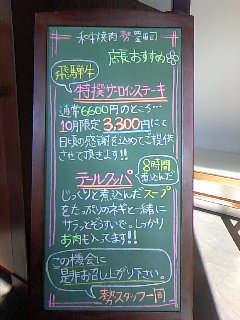 和牛焼肉 勢
店長おすすめ
飛騨牛
特撰サーロインステーキ
通常6600円のところ…
10月限定 3,300円にて
日頃の感謝を込めてご提供
させて頂きます!!
8時間
煮込んだ
テールクッパ
じっくりと煮込んだスープ
をたっぷりのネギと一緒に
サラッとそうすいで。しっかり
お肉も入ってます!!
この機会に
是非お召し上がり下さい。
勢スタッフ一同